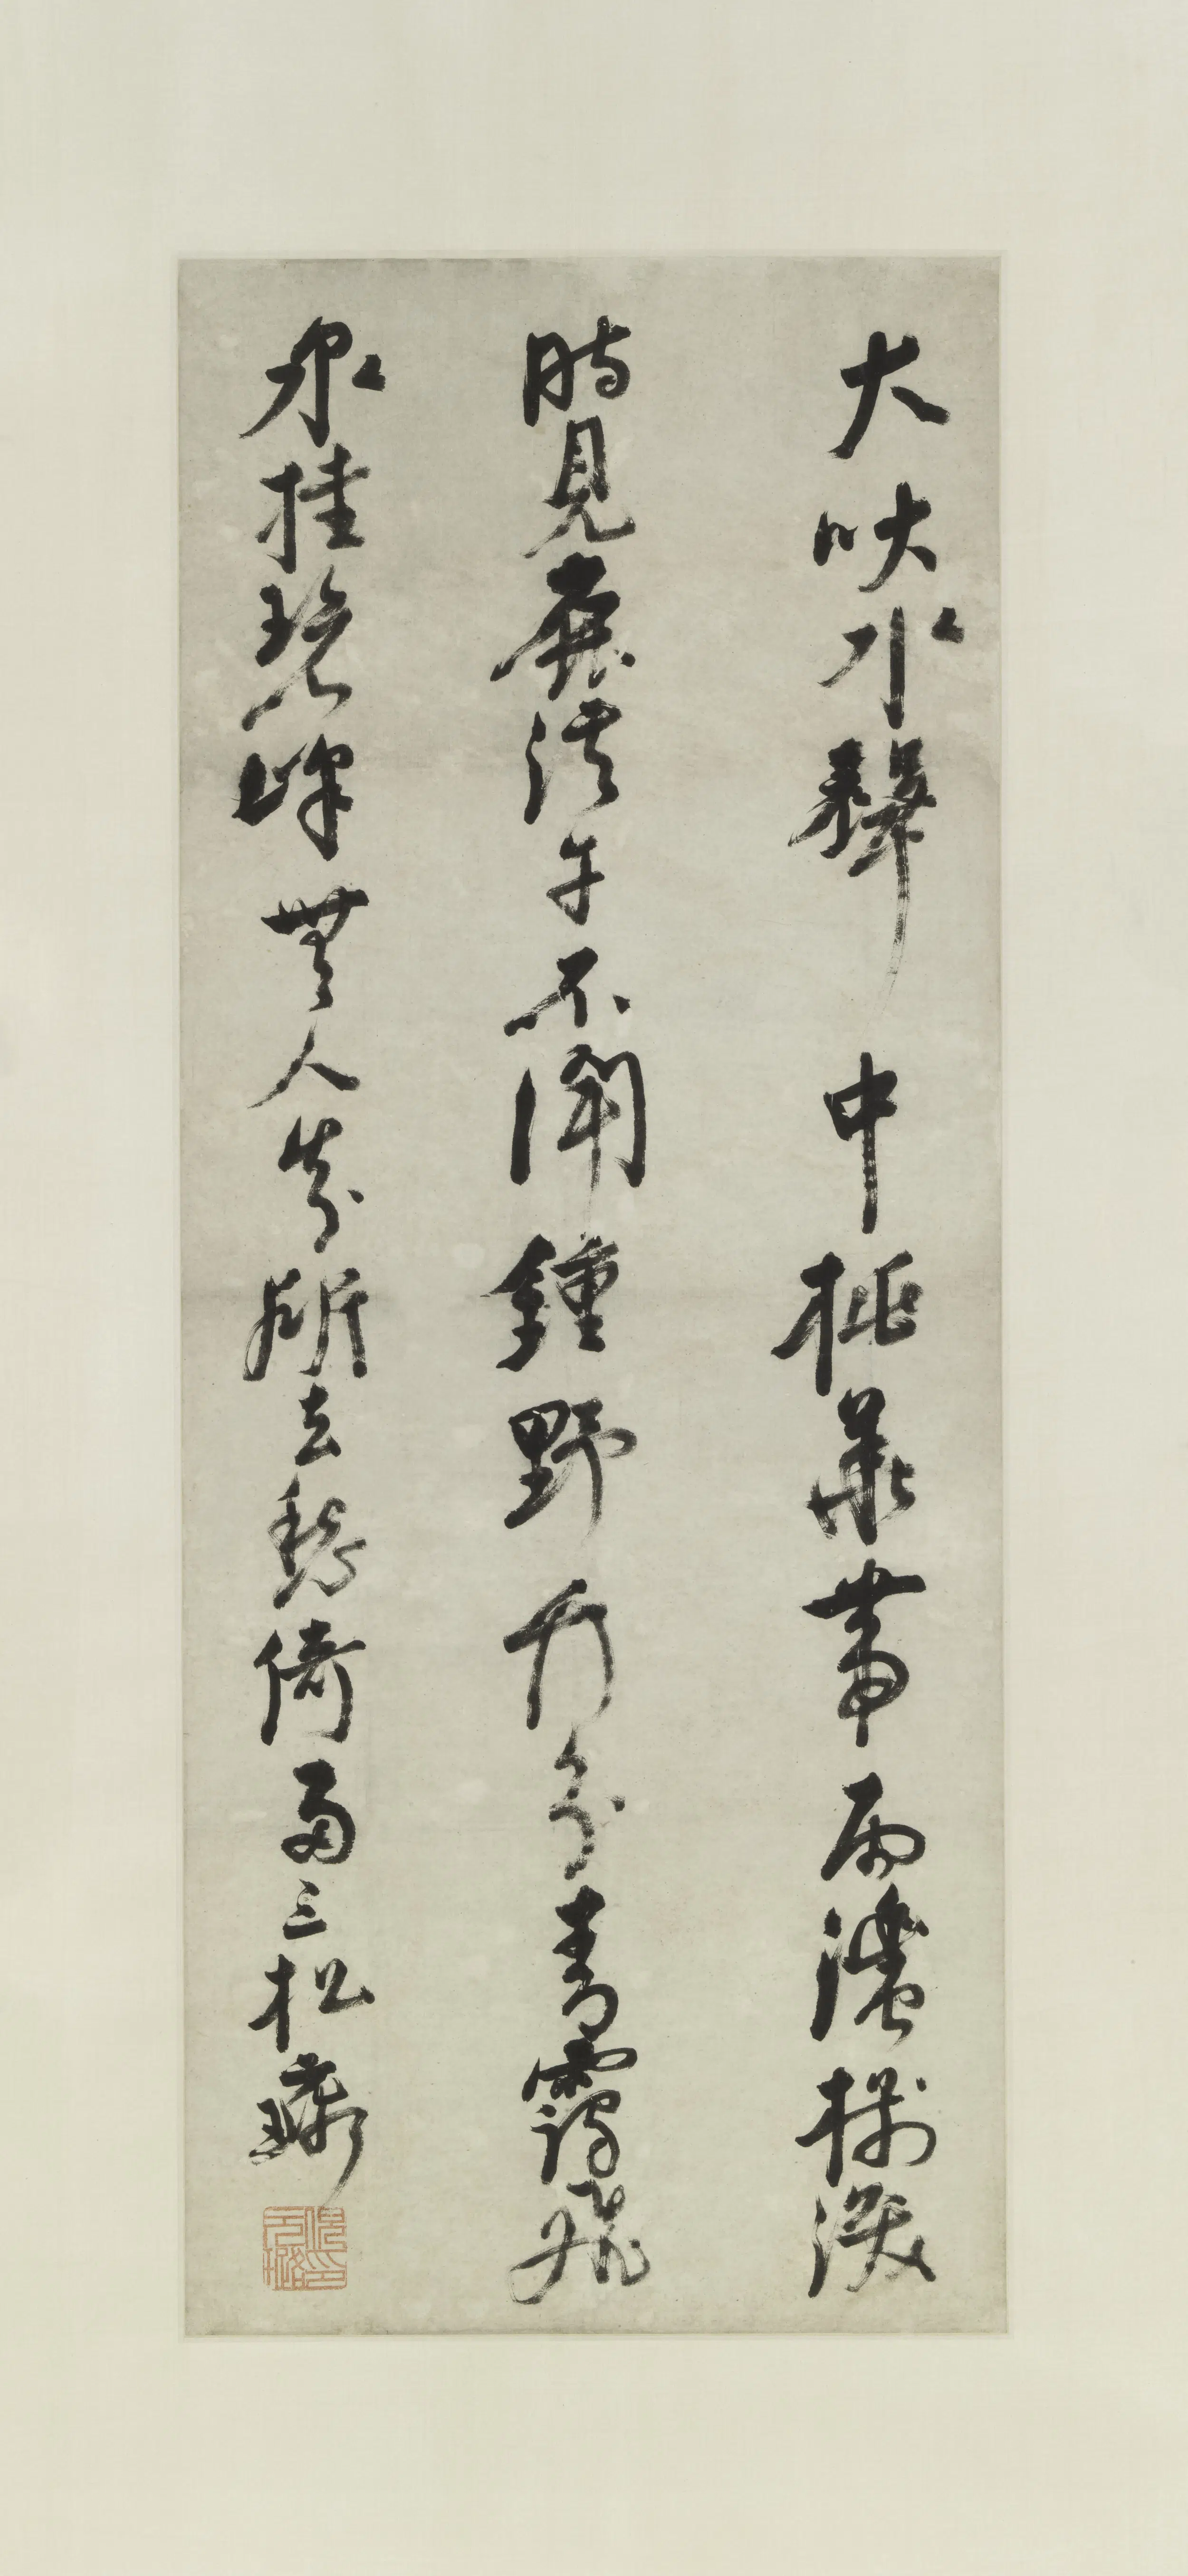 犬吠水聲中桃華帶雨濃樹深
時見鹿溪午不聞鐘野竹分青靄飛
泉挂碧峰無人知所去愁倚兩三松元璐